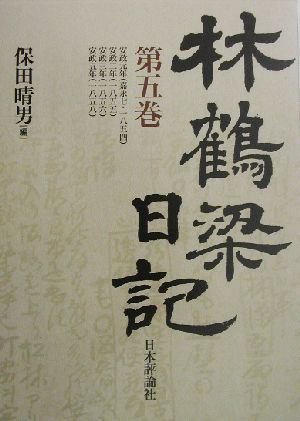 林鶴梁
日記
日本評論社
第五巻
安政元年(嘉永七・一八五四)
安政二年(一八五五)
安政三年(一八五六)
安政五年(一八五八)
保田晴男 編